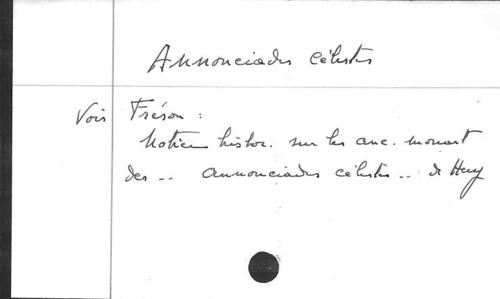 Annonciades Célestes
Voir Fréson :
Notices histor. sur les anc. monast
des .. annonciades célestes .. de Huy